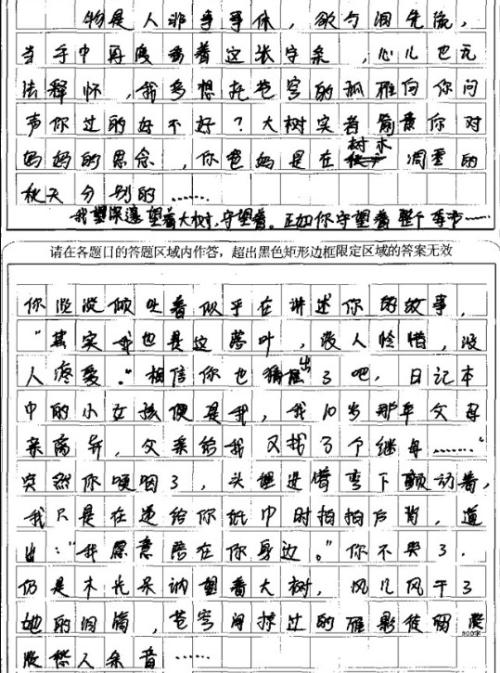 物是人非事事休，欲与泪先流，
当手中再度看着这张字条，心儿也无
法释怀，我多想托苍穹的孤雁向你问
声你过的好不好？大树实着偷藏你对
妈妈的思念，你爸妈是在树木凋零的
秋天分别的……
我望深邃望着大树，守望着。正如你守望着整个季节……
请在各题目的答题区域内作答，超出黑色矩形边框限定区域的答案无效
你淡淡倾吐着似乎在讲述你的故事，
“其实我也是这落叶，没人怜惜，没
人疼爱。”相信你也猜出了吧，日记本
中的小女孩便是我，我10岁那年父母
亲离异，父亲给我又找了个继母……”
突然你哽咽了，头埋进臂弯下颤动着，
我只是在递给你纸巾时拍拍后背，道
出：“我愿意陪在你身边。”你不哭了，
仍是木长呆讷望着大树，风儿风干了
她的泪痕，苍穹间掠过的雁影使留
800字
悠人余音……